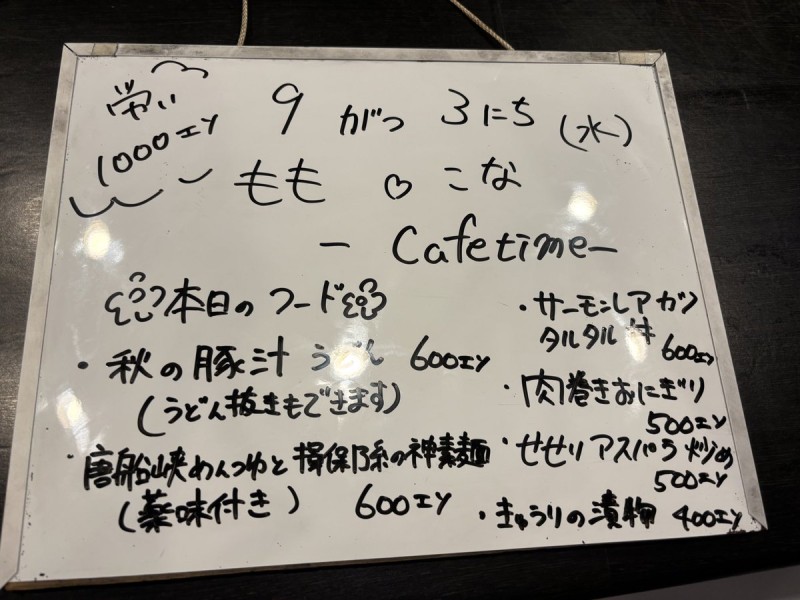 1000エン
9 がつ 3にち (水)
もも ♡ こな
- Cafetime-
本日のフード
・秋の豚汁 うどん 600エン
(うどん抜きもできます)
・唐船峡めんつゆと揖保乃糸の神素麺
(薬味付き) 600エン
・サーモンレアカツ
タルタル丼
600エン
・肉巻きおにぎり
500エン
・せせりアスパラ炒め
500エン
・きゅうりの漬物 400エン